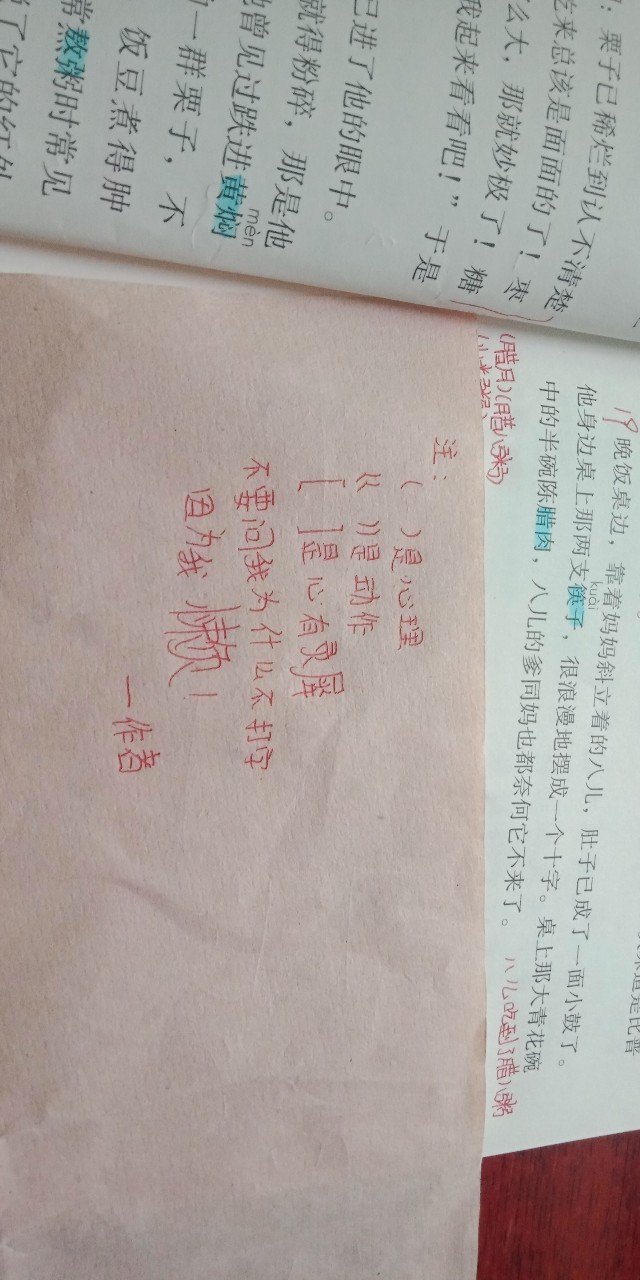 ：栗子已稀烂到认不清楚
吃来总该是面面的了！枣
么大，那就妙极了！糖
我起来看看吧！”于是
已进了他的眼中。
就得粉碎，那是他
mèn
曾见过跌进黄焖
一群栗子，不
饭豆煮得肿
常熬粥时常见
了它的红外
19 晚饭桌边，靠着妈妈斜立着的八儿，肚子已成了一面小鼓了。
kuài
他身边桌上那两支筷子，很浪漫地摆成一个十字。桌上那大青花碗
中的半碗陈腊肉，八儿的爹同妈也都奈何它不来了。
八儿吃到了腊八粥
(腊月)(腊八粥)
注：
( )是心理
(( ))是动作
[ ]是心有灵犀
不要问我为什么不打字
因为我懒！
一作者